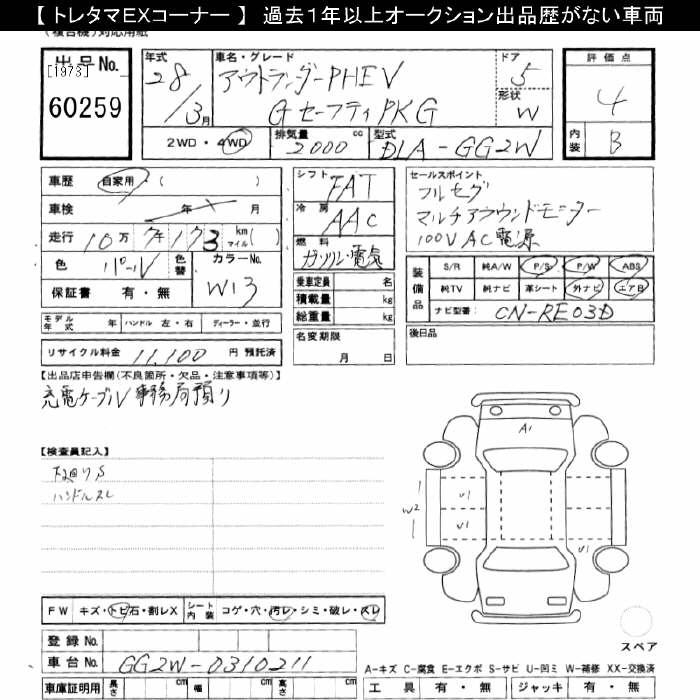 【 トレタマEXコーナー 】 過去１年以上オークション出品歴がない車両
(複合機)対応用紙
出品No.
[1973]
60259
年式
28/3月
車名・グレード
アウトランダーPHEV
Gセーフティ PKG
ドア
5
形状
W
評価点
4
内装
B
2WD・4WD
排気量
2000cc
型式
DLA-GG2W
車歴 自家用・( )
車検 年 月
走行 10万7千173 km マイル( )
色 パール 色替 カラーNo. W13
保証書 有・無
シフト FAT
冷房 AAC
燃料 ガソリン・電気
乗車定員 名
積載量 kg
総重量 kg
セールスポイント
フルセグ
マルチアラウンドモニター
100V AC電源
装備品
S/R 純A/W P/S P/W ABS
純TV 純ナビ 革シート 外ナビ エアB
ナビ型番: CN-RE03D
モデル年式 年 ハンドル 左・右 ディーラー・並行
リサイクル料金 11,100 円 預託済
名変期限
月 日
後日品
【出品店申告欄(不良箇所・欠品・注意事項等)】
充電ケーブル 事務局預り
【検査員記入】
下廻りS
ハンドルスレ
A1
U1
U1
W2
FW キズ・トビ石・割レX シート内装 コゲ・穴・汚レ・シミ・破レ・スレ
登録No.
車台No. GG2W-0310211
車庫証明用 長さ cm 幅 cm 高さ cm
スペア
A-キズ C-腐食 E-エクボ S-サビ U-凹ミ W-補修 XX-交換済
工具 有・無 ジャッキ 有・無